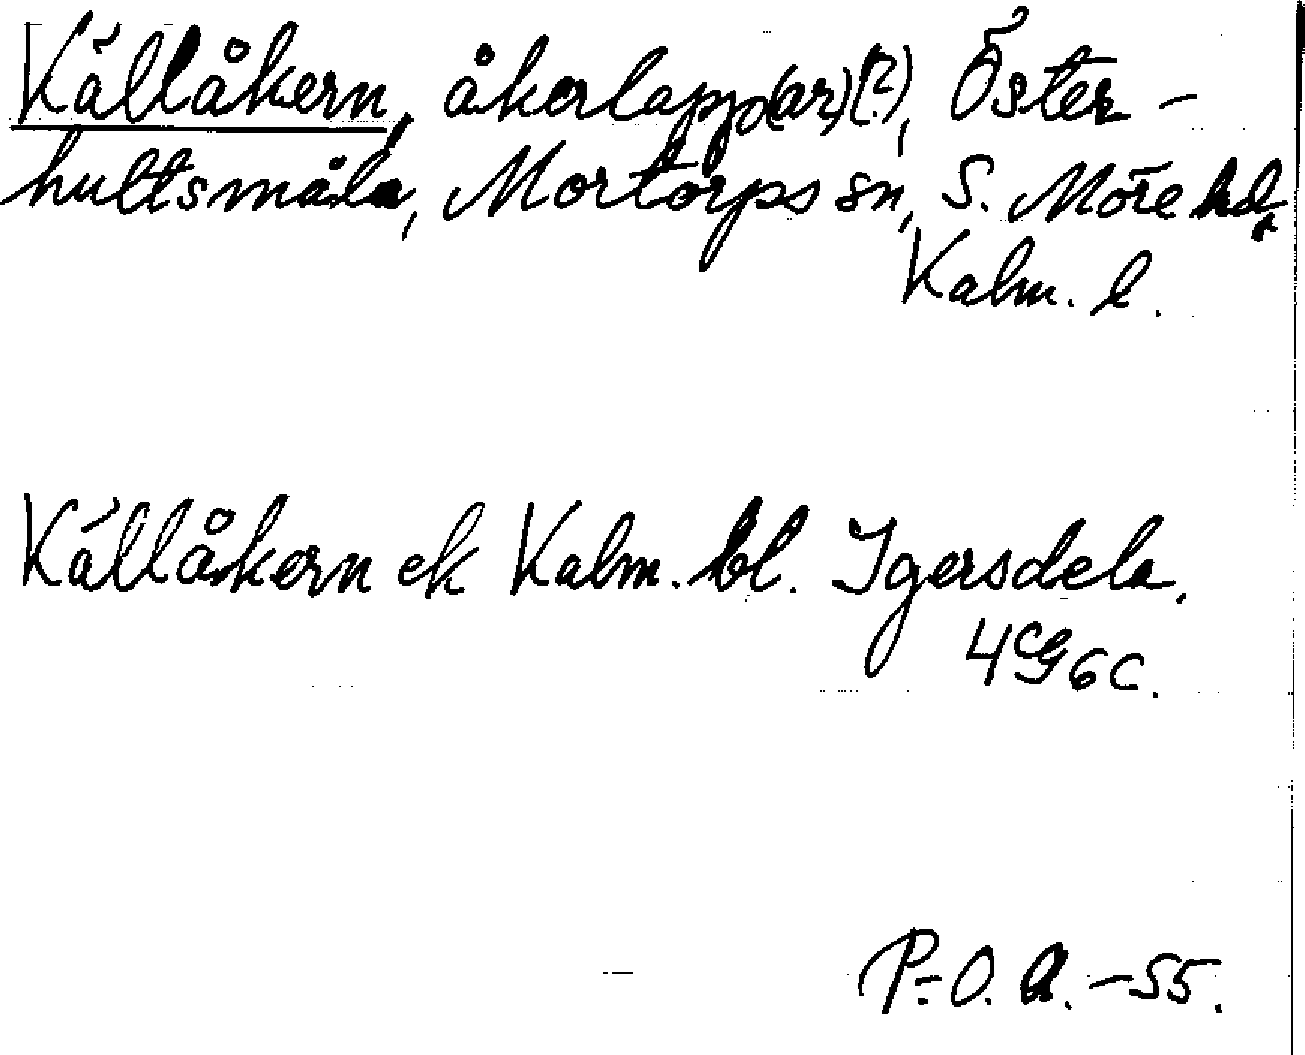 Källåkern, åkerlapp(ar)(?), Öster-
hultsmåla, Mortorps sn, S. Möre hd,
Kalm. l.
Källåkern ek Kalm. bl. Igersdela.
4G6c.
P.-O. A. -55.